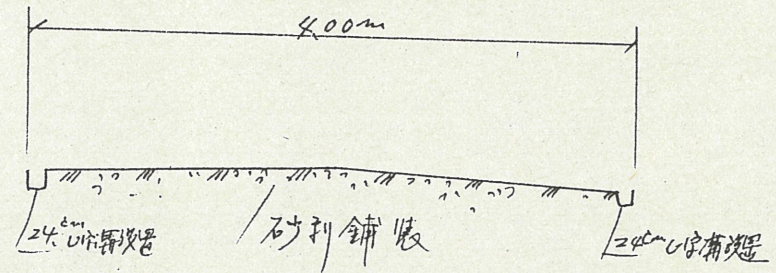 4.00m
24cm U字溝設置
砂利舗装
24cm U字溝設置